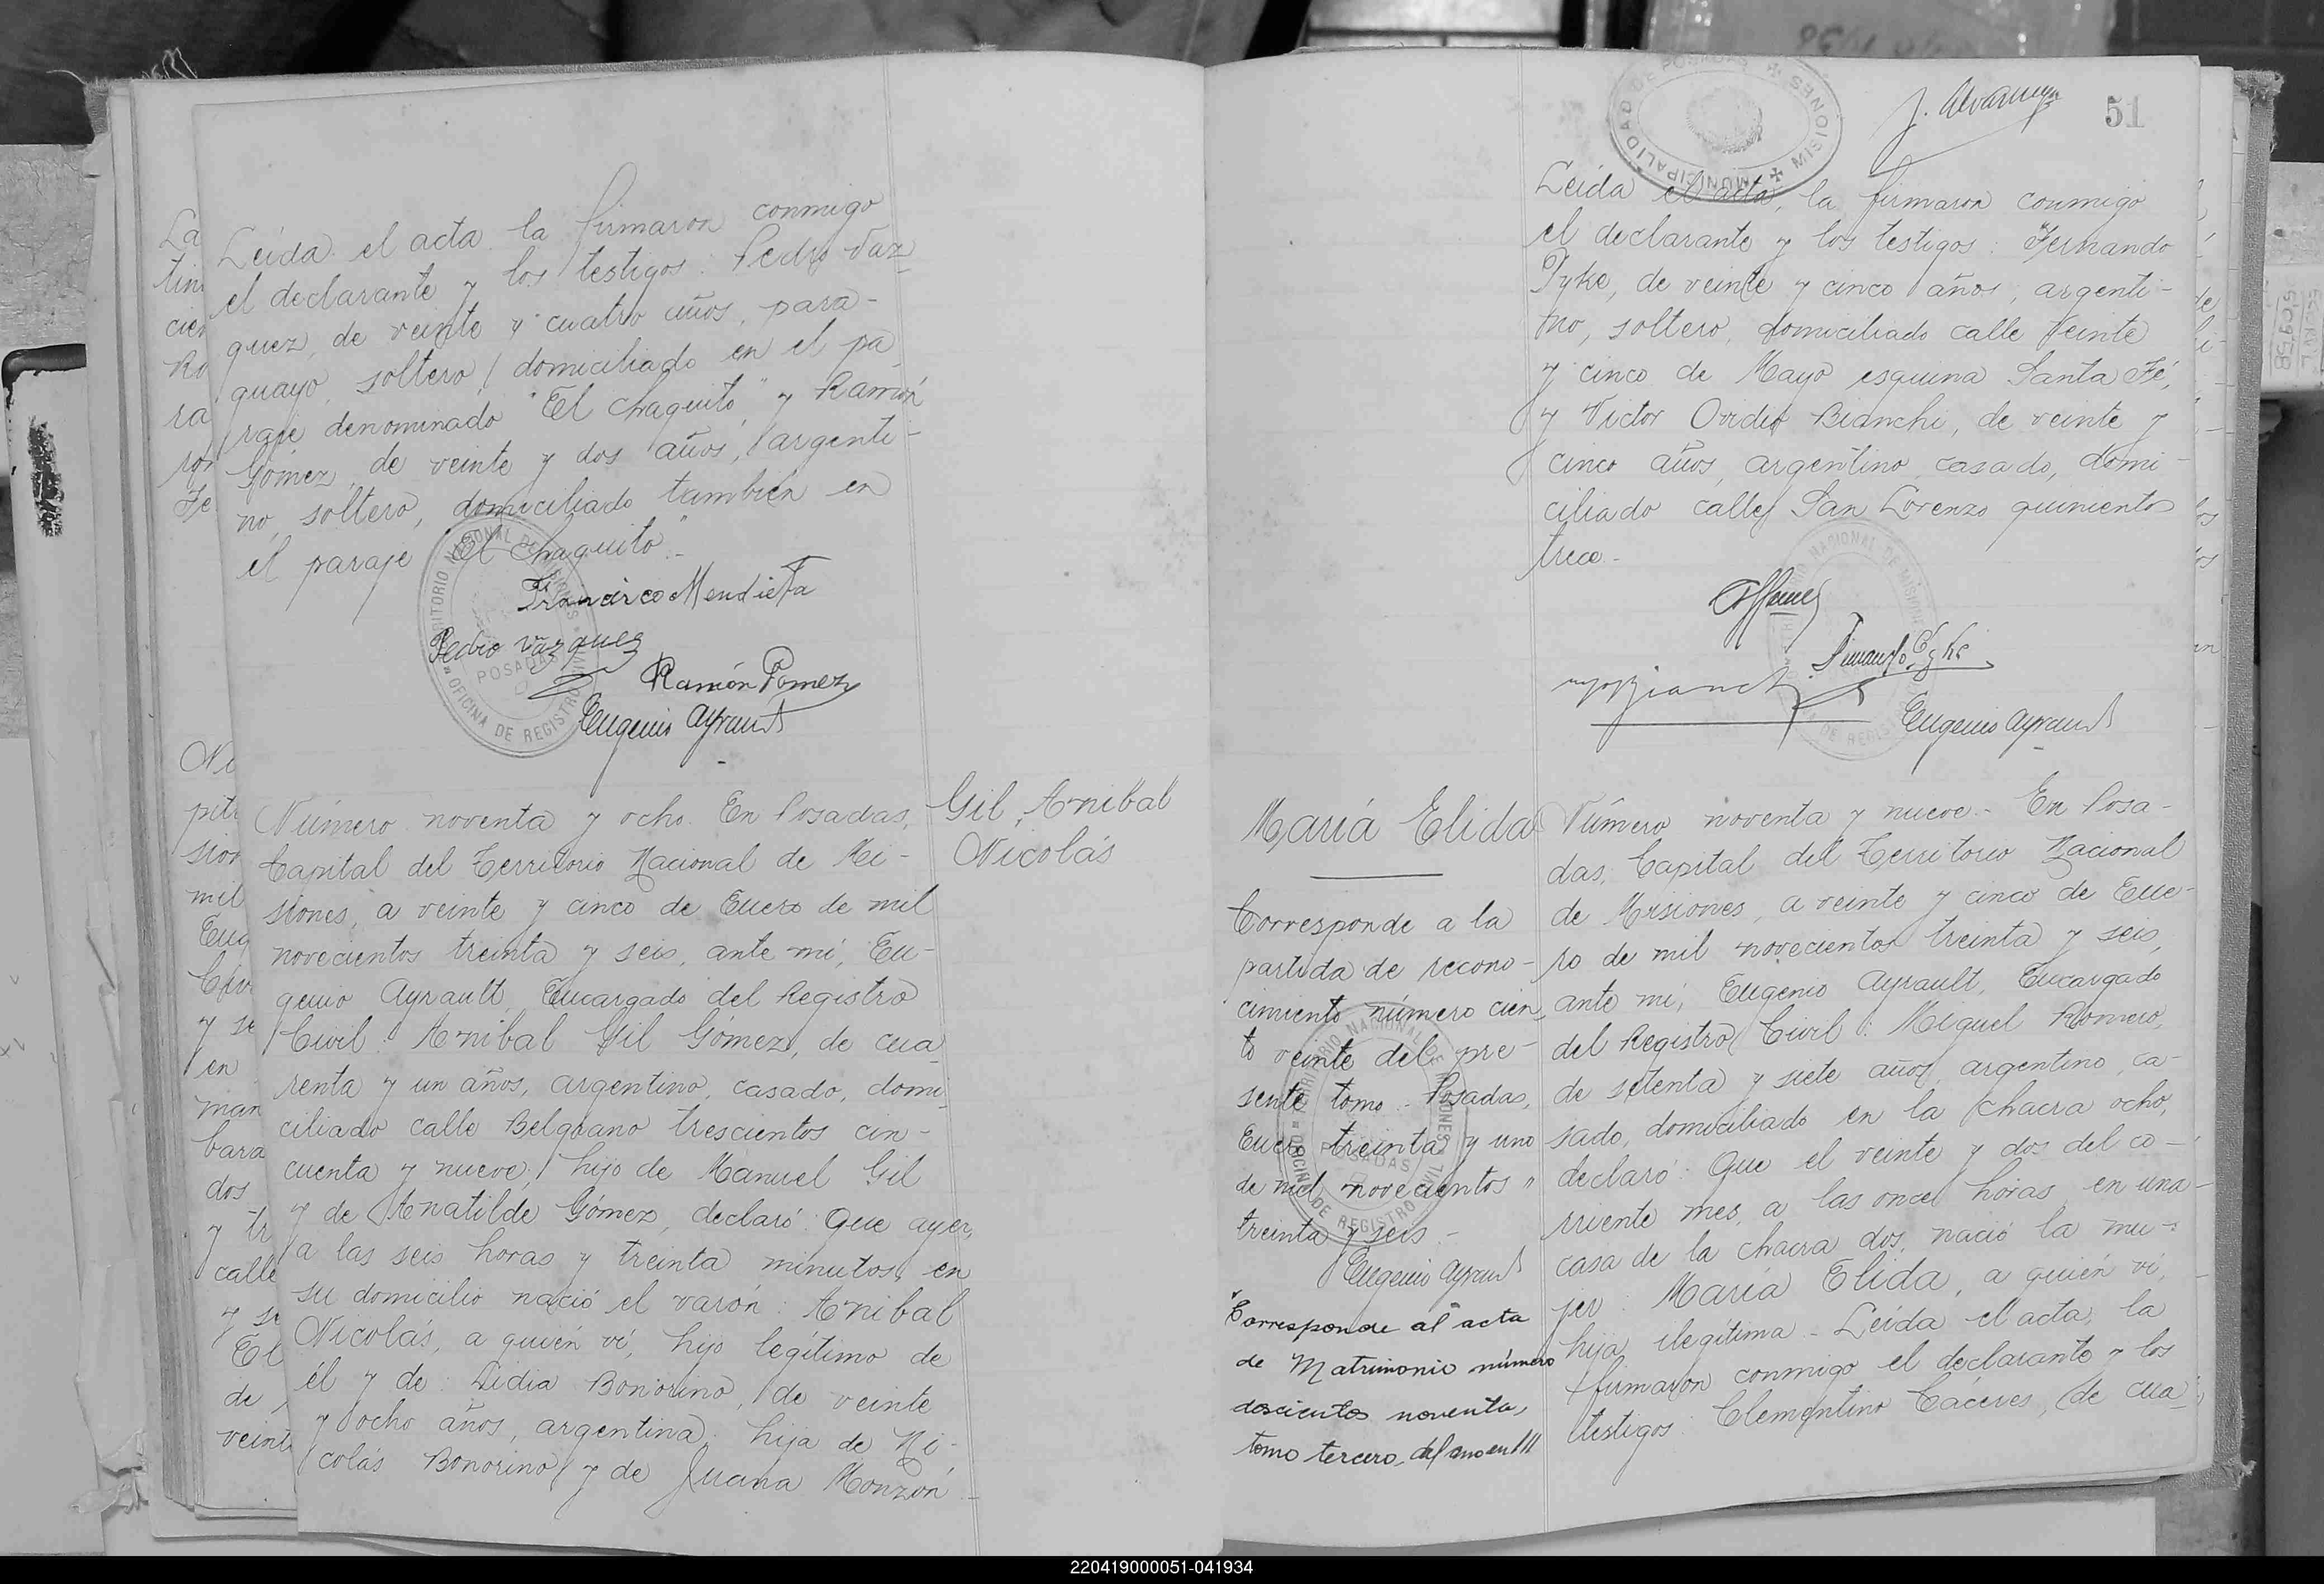 Leída el acta la firmaron conmigo
el declarante y los testigos: Pedro Vaz
quez, de veinte y cuatro años, para-
guayo, soltero, domiciliado en el pa
raje denominado "El Chaquito" y Ramón
Gómez, de veinte y dos años, argenti-
no, soltero, domiciliado tambien en
el paraje "El Chaquito".-
Francisco Mendieta
Pedro Vazquez
Ramón Gomez
Eugenio Ayrault
TERRITORIO NACIONAL DE MISIONES
POSADAS
OFICINA DE REGISTRO CIVIL
Gil, Anibal
Nicolás
Número noventa y ocho. En Posadas,
Capital del Territorio Nacional de Mi-
siones, a veinte y cinco de Enero de mil
novecientos treinta y seis, ante mí, Eu-
genio Ayrault, Encargado del Registro
Civil: Anibal Gil Gómez, de cua
renta y un años, argentino, casado, domi
ciliado calle Belgrano trescientos cin-
cuenta y nueve, hijo de Manuel Gil
y de Anatilde Gómez, declaró: Que ayer,
a las seis horas y treinta minutos, en
su domicilio nació el varón: Anibal
Nicolás, a quién ví, hijo legítimo de
él y de Lidia Bonorino, de veinte
y ocho años, argentina, hija de Ni-
colás Bonorino y de Juana Monzón-
MUNICIPALIDAD DE POSADAS
MISIONES
51
Leída el acta, la firmaron conmigo
el declarante y los testigos: Fernando
Tyke, de veinte y cinco años, argenti-
no, soltero, domiciliado calle Veinte
y cinco de Mayo esquina Santa Fé,
y Victor Ovidio Bianchi, de veinte y
cinco años, argentino, casado, domi-
ciliado calle San Lorenzo quinientos
trece.-
Eugenio Ayrault
María Elida
Número noventa y nueve.- En Posa-
das, Capital del Territorio Nacional
de Misiones, a veinte y cinco de Ene-
ro de mil novecientos treinta y seis,
ante mí, Eugenio Ayrault, Encargado
del Registro Civil: Miguel Romero,
de setenta y siete años, argentino, ca-
sado, domiciliado en la chacra ocho,
declaró: Que el veinte y dos del co-
rriente mes, a las once horas, en una
casa de la chacra dos, nació la mu-
jer: María Elida, a quién ví,
hija ilegítima.- Leída el acta, la
firmaron conmigo el declarante y los
testigos: Clementino Cáceres, de cua
Corresponde a la
partida de recono-
cimiento número cien
to veinte del pre-
sente tomo.- Posadas,
Enero treinta y uno
de mil novecientos
treinta y seis.-
Eugenio Ayrault
Corresponde al acta
de Matrimonio número
doscientos noventa,
tomo tercero, del
220419000051-041934